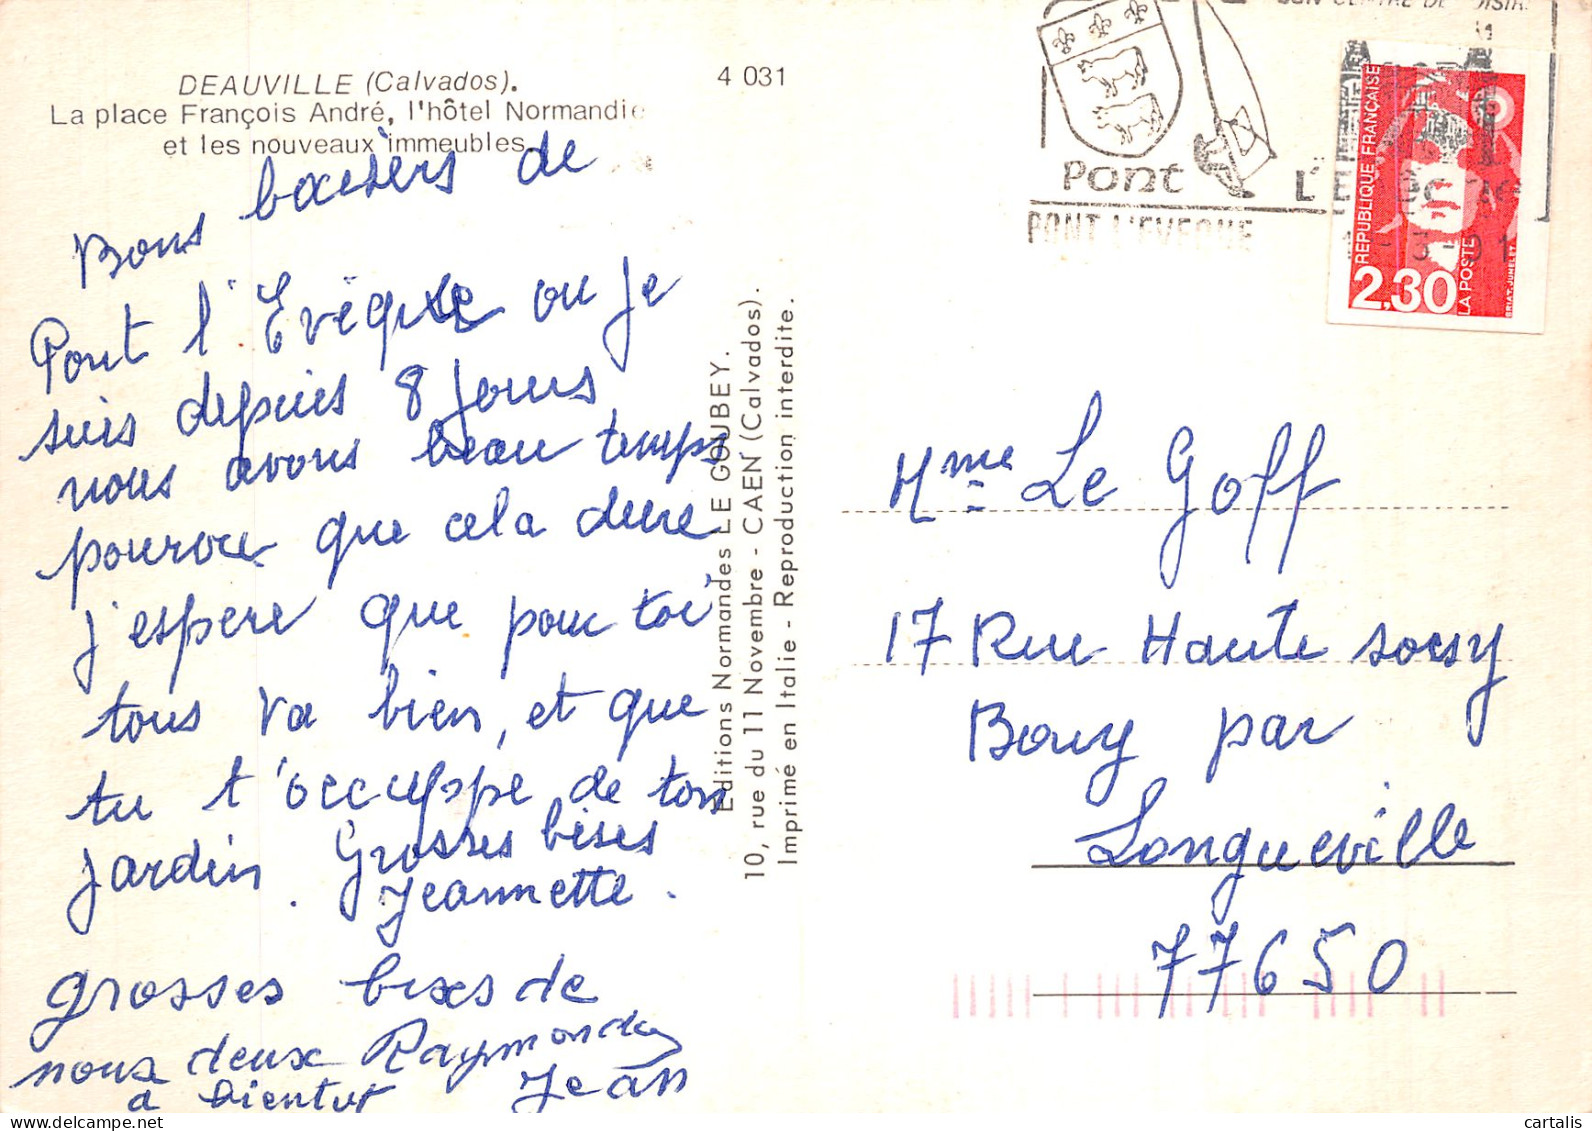 DEAUVILLE (Calvados).
La place François André, l'hôtel Normandie
et les nouveaux immeubles.
4 031
Bons baisers de
Pont l'Evêque ou je
suis depuis 8 jours
nous avons beau temps
pourvue que cela dure
j'espere que pour toi
tous va bien, et que
tu t'occuppe de ton
jardin. Grosses bises
Jeannette.
grosses bixes de
nous deux Raymonde
a bientot Jean
Editions Normandes LE GOUBEY.
10, rue du 11 Novembre - CAEN (Calvados).
Imprimé en Italie - Reproduction interdite.
SON CENTRE DE LOISIRS
Pont L'E
PONT L'EVEQUE
-3-91
REPUBLIQUE FRANÇAISE
2,30
LA POSTE
BRIAT. JUMELET
Mme Le Goff
17 Rue Haute soisy
Bouy par
Longueville
77650
delcampe.net
cartes-CARTERIE